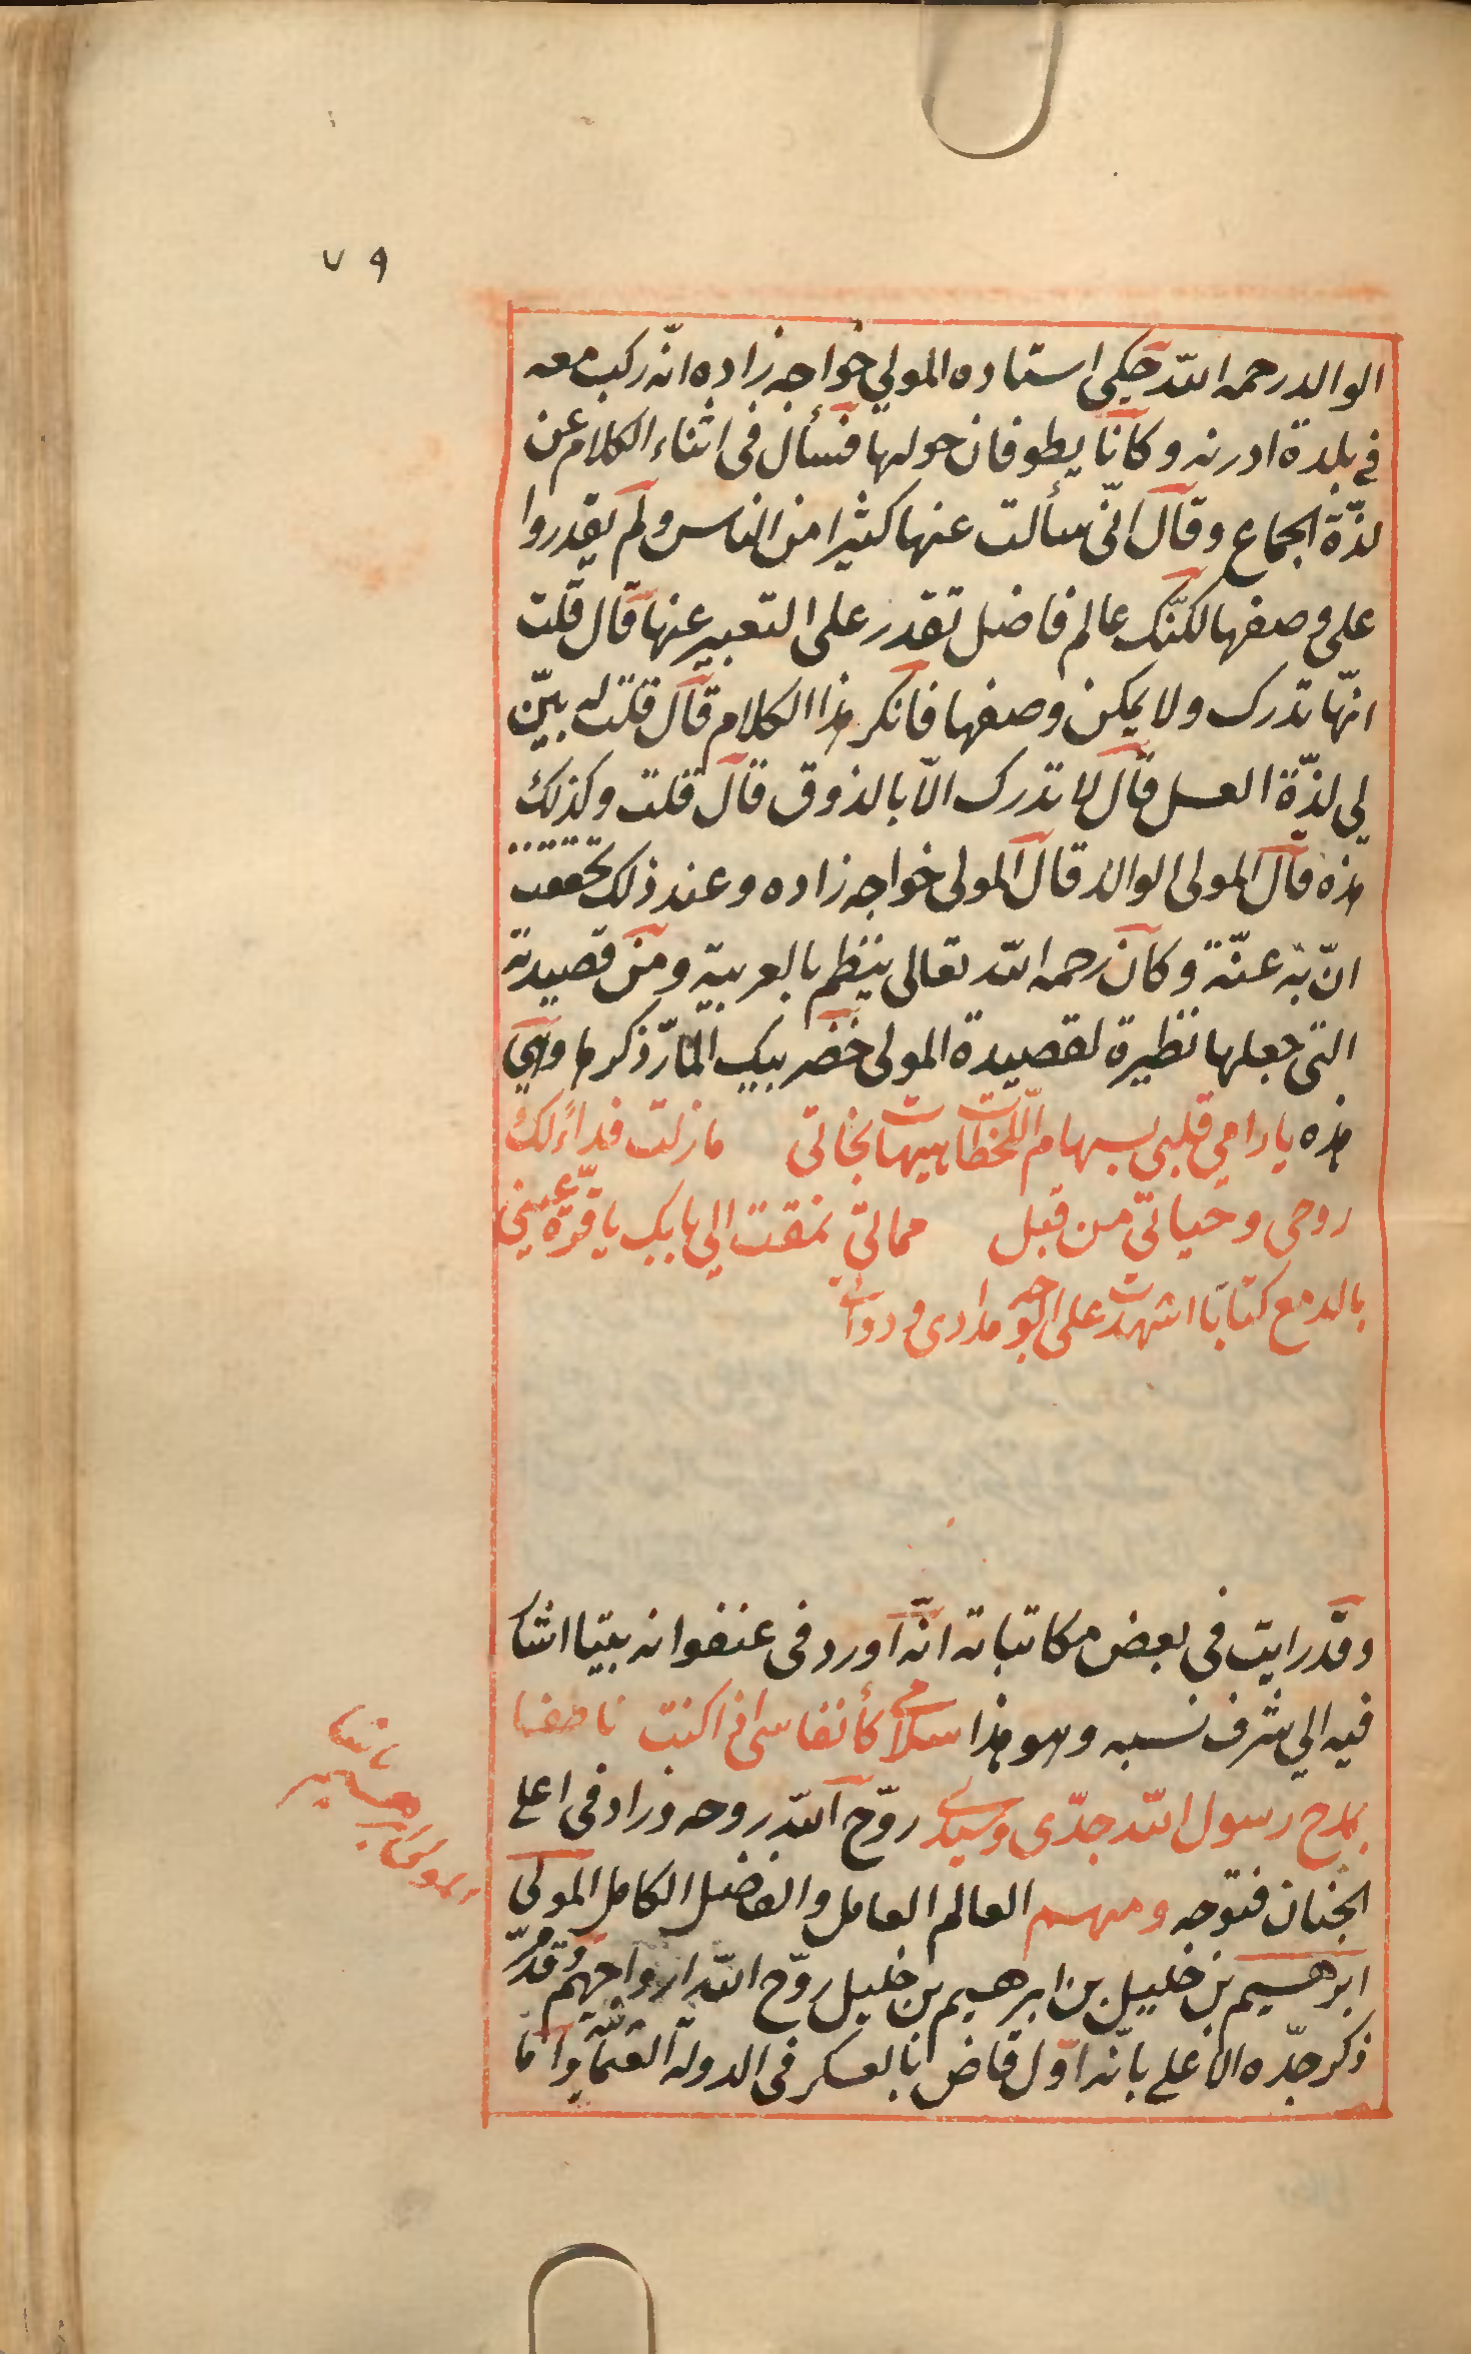 ٧٩
الوالد رحمه الله حكى استاده المولى خواجه زاده انّه ركب معه
في بلدة ادرنه وكانا يطوفان حولها فسأل فى اثناء الكلام عن
لذّة الجماع وقال انّى سألت عنها كثيرا من الناس ولم يقدروا
على وصفها لكنّك عالم فاضل تقدر على التعبير عنها قال قلت
انّها تدرك ولا يمكن وصفها فانكر هذا الكلام قال قلت له بيّن
لي لذّة العسل قال لا تدرك الاّ بالذوق قال قلت وكذلك
هذه قال المولى الوالد قال المولى خواجه زاده وعند ذلك تحققت
انّ به عنّة وكان رحمه الله تعالى ينظم بالعربية ومن قصيدته
التى جعلها نظيرة لقصيدة المولى خضر بيك المارّ ذكرها وهي
هذه يا رامي قلبى بسهام اللّحظات هيهات نجاتى ما زلت فداءً لك
روحى وحياتى من قبل مماتي نمقت الي بابك يا قرّة عيني
بالدمع كتابا اشهدت على الوجد مدادى ودواتى
وقد رايت فى بعض مكاتباته انّه اورد فى عنفوانه بيتا اشا
فيه الي شرف نسبه وهو هذا سلامى كأنفاسى اذا كنت ناطقا
بمدح رسول الله جدّى وسيدى روّح الله روحه وزاد فى اعلى
الجنان فتوحه ومنهم العالم العامل والفاضل الكامل المولى
ابرهيم بن خليل بن ابرهيم بن خليل روّح الله ارواحهم قد مرّ
ذكر جدّه الاعلى بانّه اوّل قاض بالعسكر فى الدولة العثمانية واما
المولى ابرهيم پاشا